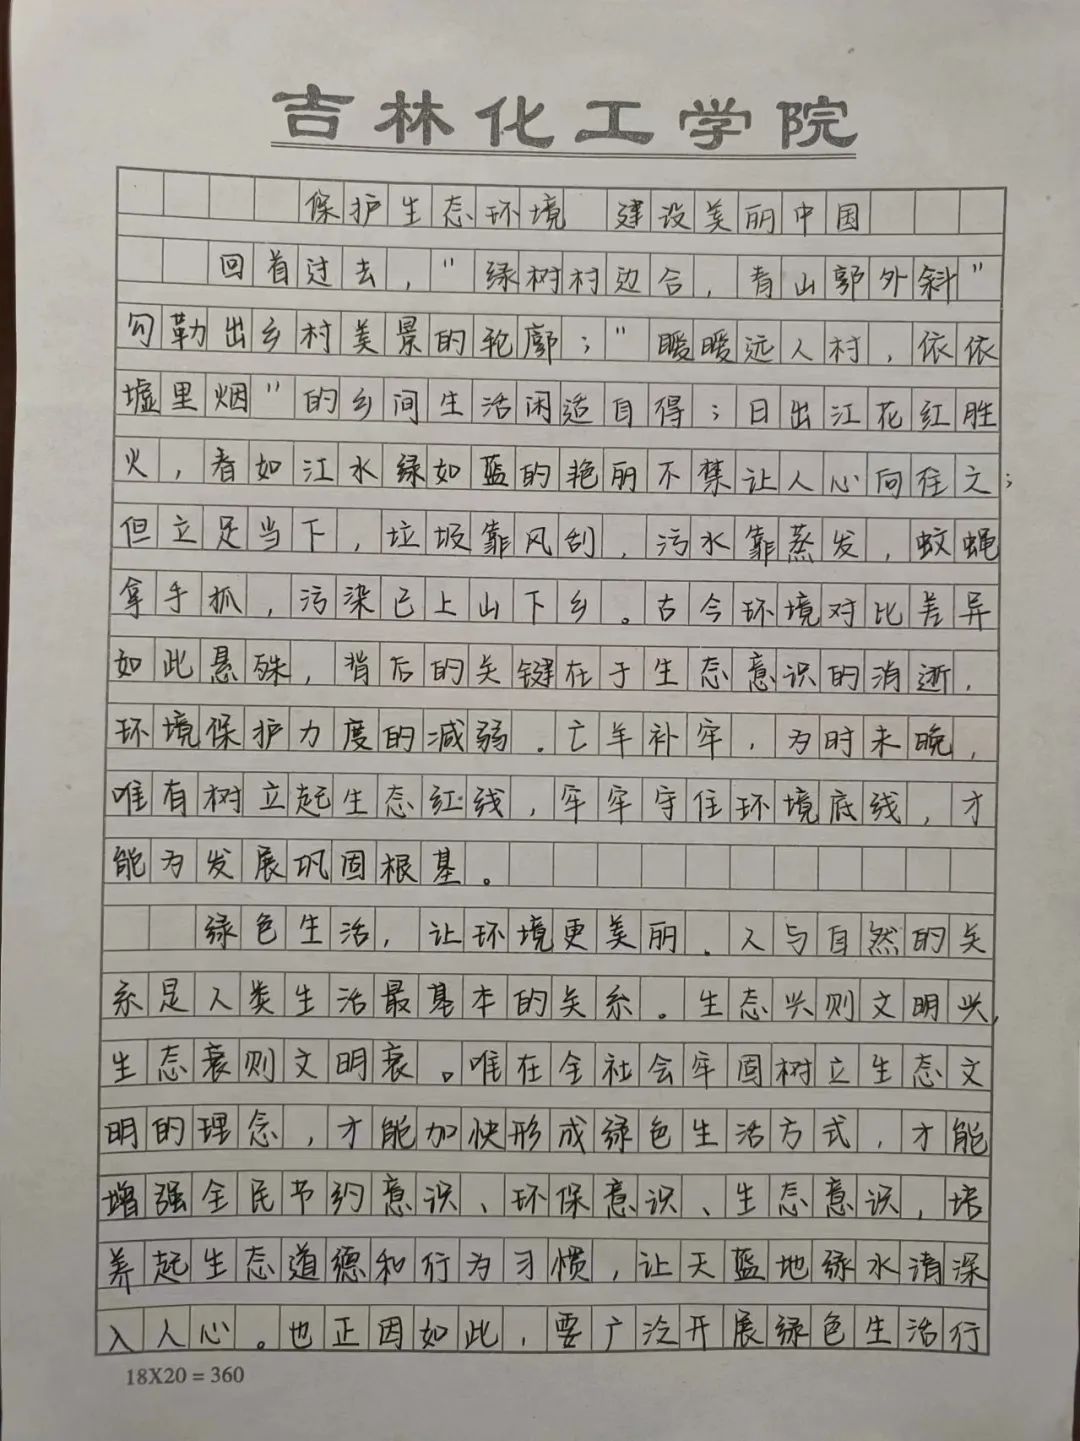 吉林化工学院
保护生态环境 建设美丽中国
回首过去，“绿树村边合，青山郭外斜”
勾勒出乡村美景的轮廓；“暖暖远人村，依依
墟里烟”的乡间生活闲适自得；日出江花红胜
火，春如江水绿如蓝的艳丽不禁让人心向往之；
但立足当下，垃圾靠风刮，污水靠蒸发，蚊蝇
拿手抓，污染已上山下乡。古今环境对比差异
如此悬殊，背后的关键在于生态意识的消逝，
环境保护力度的减弱．亡羊补牢，为时未晚，
唯有树立起生态红线，牢牢守住环境底线，才
能为发展巩固根基。
绿色生活，让环境更美丽．人与自然的关
系是人类生活最基本的关系。生态兴则文明兴，
生态衰则文明衰。唯在全社会牢固树立生态文
明的理念，才能加快形成绿色生活方式，才能
增强全民节约意识、环保意识、生态意识，培
养起生态道德和行为习惯，让天蓝地绿水清深
入人心。也正因如此，要广泛开展绿色生活行
18X20＝360